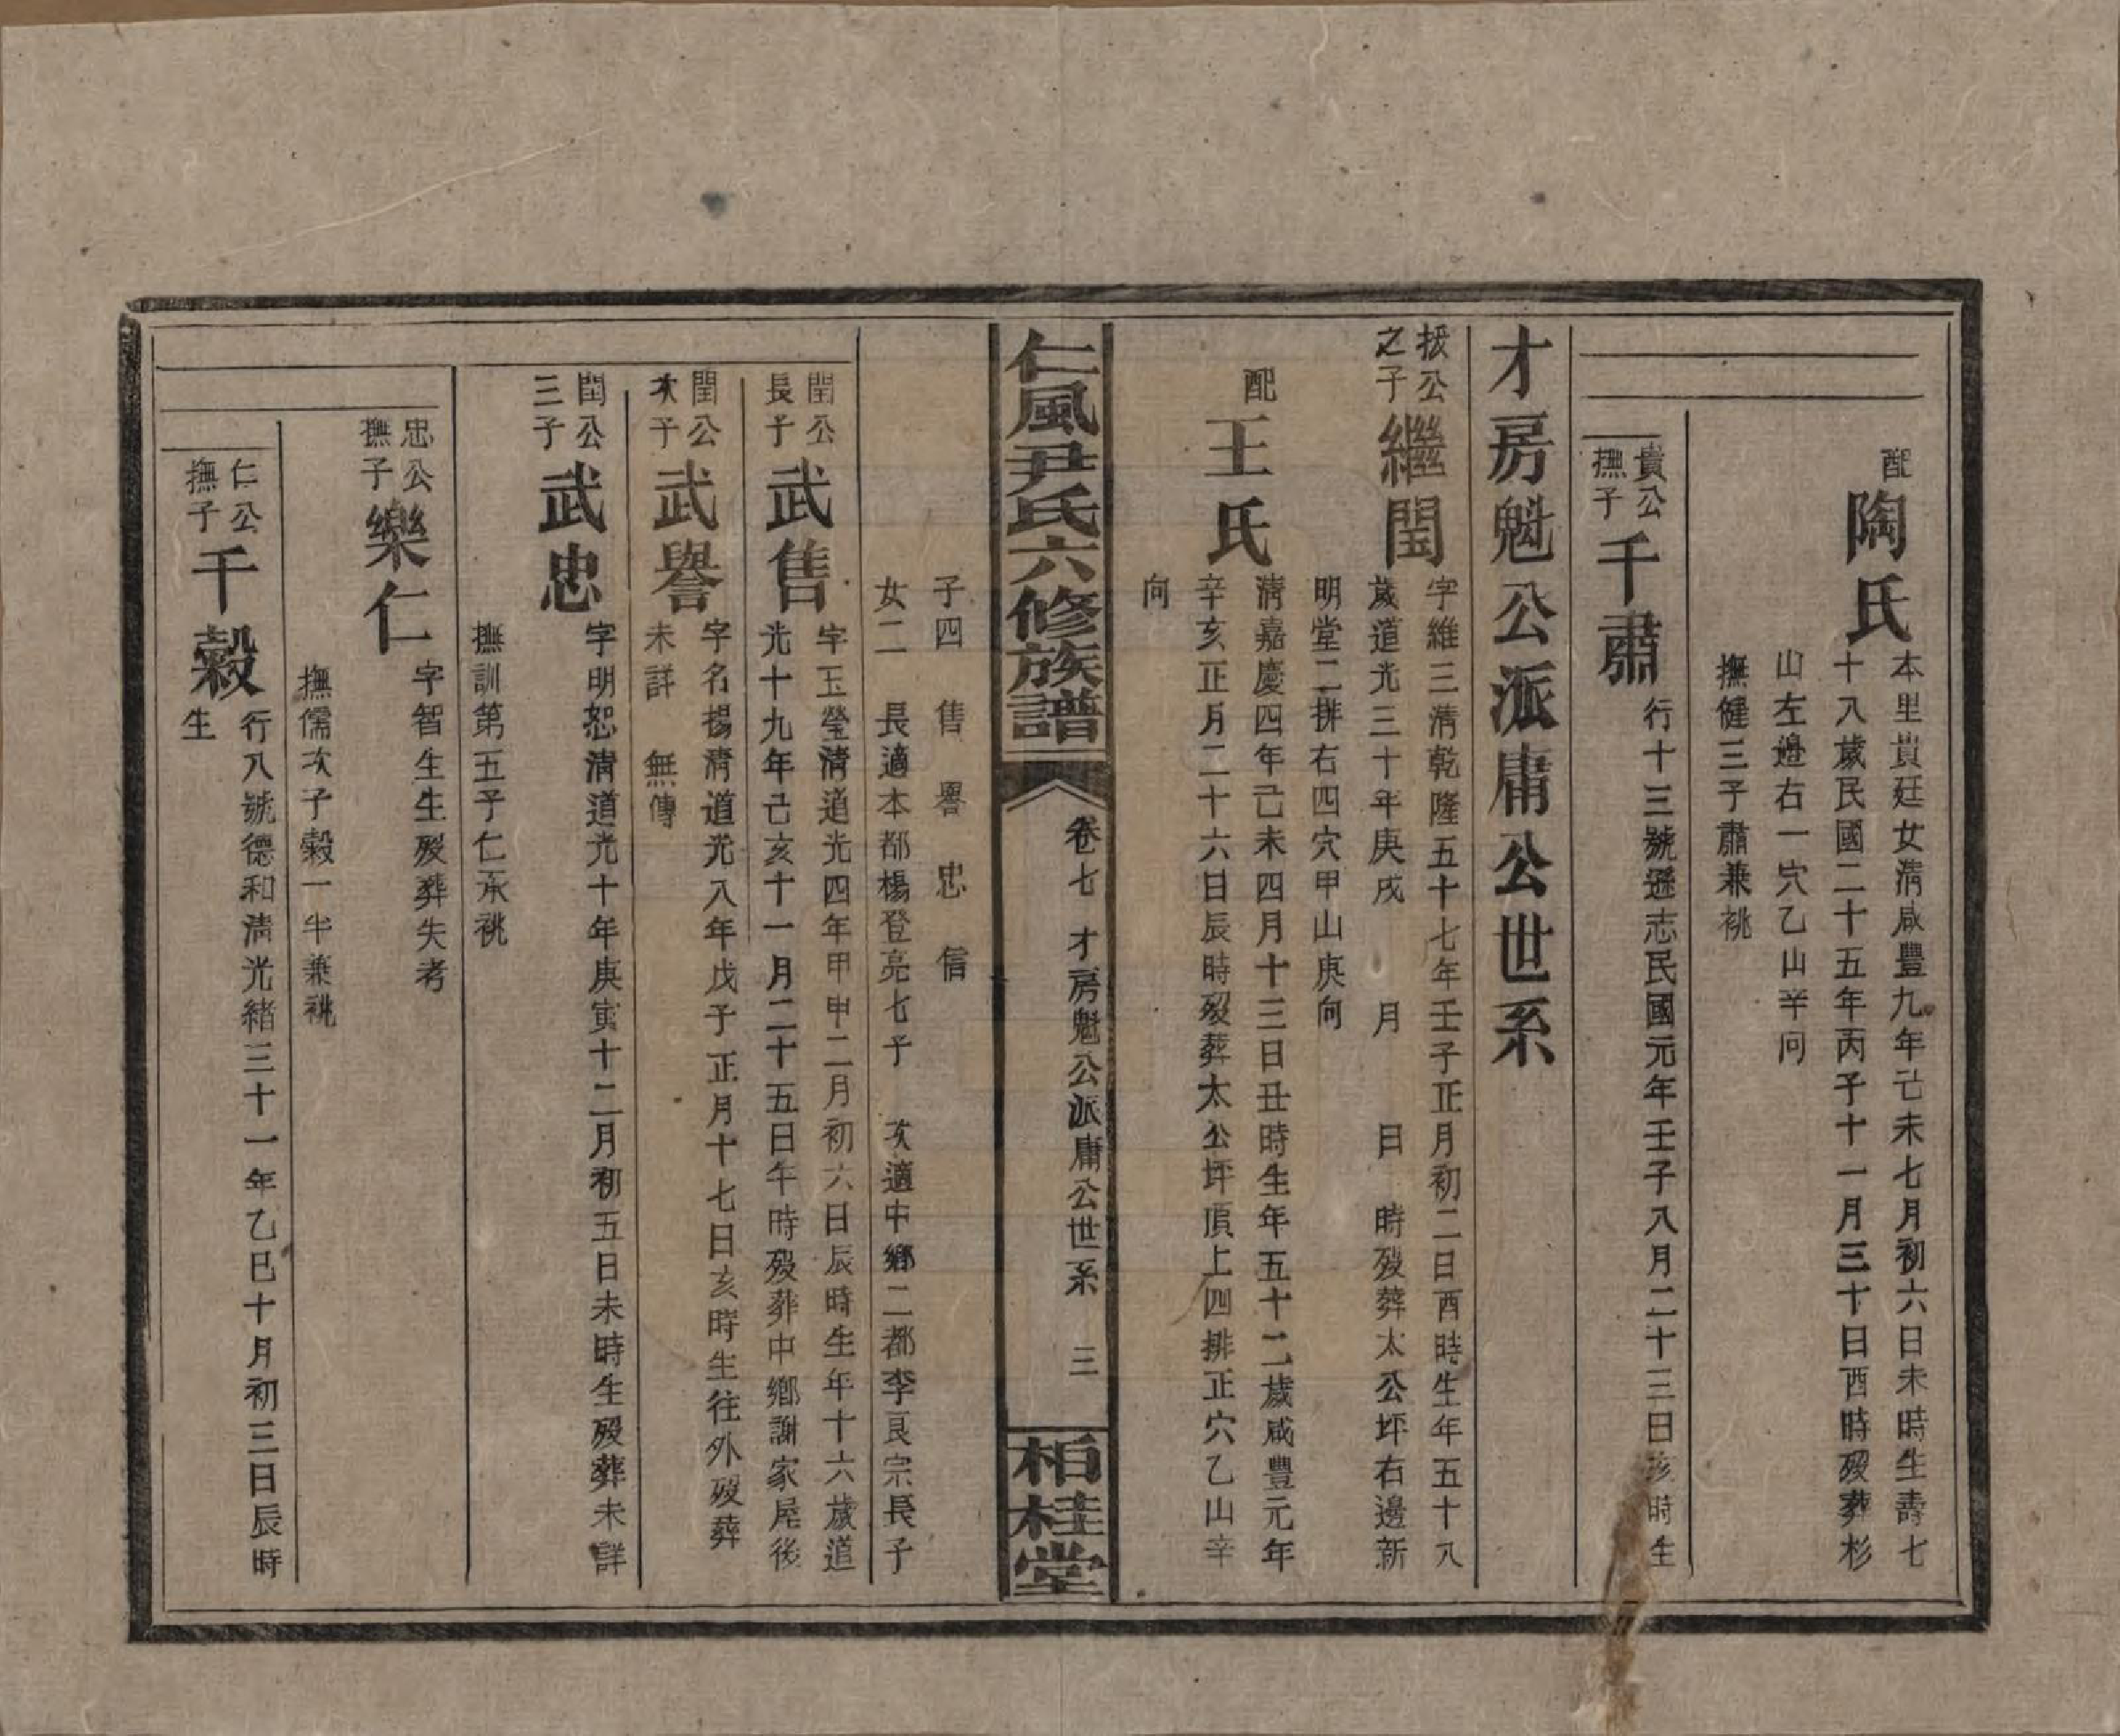 配
陶氏
本里貴廷女淸咸豐九年己未七月初六日未時生壽七
十八歲民國二十五年丙子十一月三十日酉時歿葬杉
山左邉右一穴乙山辛向
撫健三子肅兼祧
貴公
撫子
千肅
行十三號遜志民國元年壬子八月二十三日亥時生
才房魁公派庸公世系
拔公
之子
繼閏
字維三淸乾隆五十七年壬子正月初二日酉時生年五十八
歲道光三十年庚戌 月 日 時歿葬太公坪右邊新
明堂二排右四穴甲山庚向
配
王氏
淸嘉慶四年己未四月十三日丑時生年五十二歲咸豐元年
辛亥正月二十六日辰時歿葬太公坪頂上四排正穴乙山辛
向
仁風尹氏六修族譜
卷七 才房魁公派庸公世系 三
栢桂堂
子四 售 譽 忠 信
女二 長適本都楊登亮七子 次適中鄉二都李良宗長子
閏公
長子
武售
字玉瑩淸道光四年甲申二月初六日辰時生年十六歲道
光十九年己亥十一月二十五日午時歿葬中鄉謝家屋後
閏公
次子
武譽
字名揚淸道光八年戊子正月十七日亥時生往外歿葬
未詳 無傳
閏公
三子
武忠
字明恕淸道光十年庚寅十二月初五日未時生歿葬未詳
撫訓第五子仁承祧
忠公
撫子
樂仁
字智生生歿葬失考
撫儒次子穀一半兼祧
仁公
撫子
千穀
行八號德和淸光緒三十一年乙巳十月初三日辰時
生